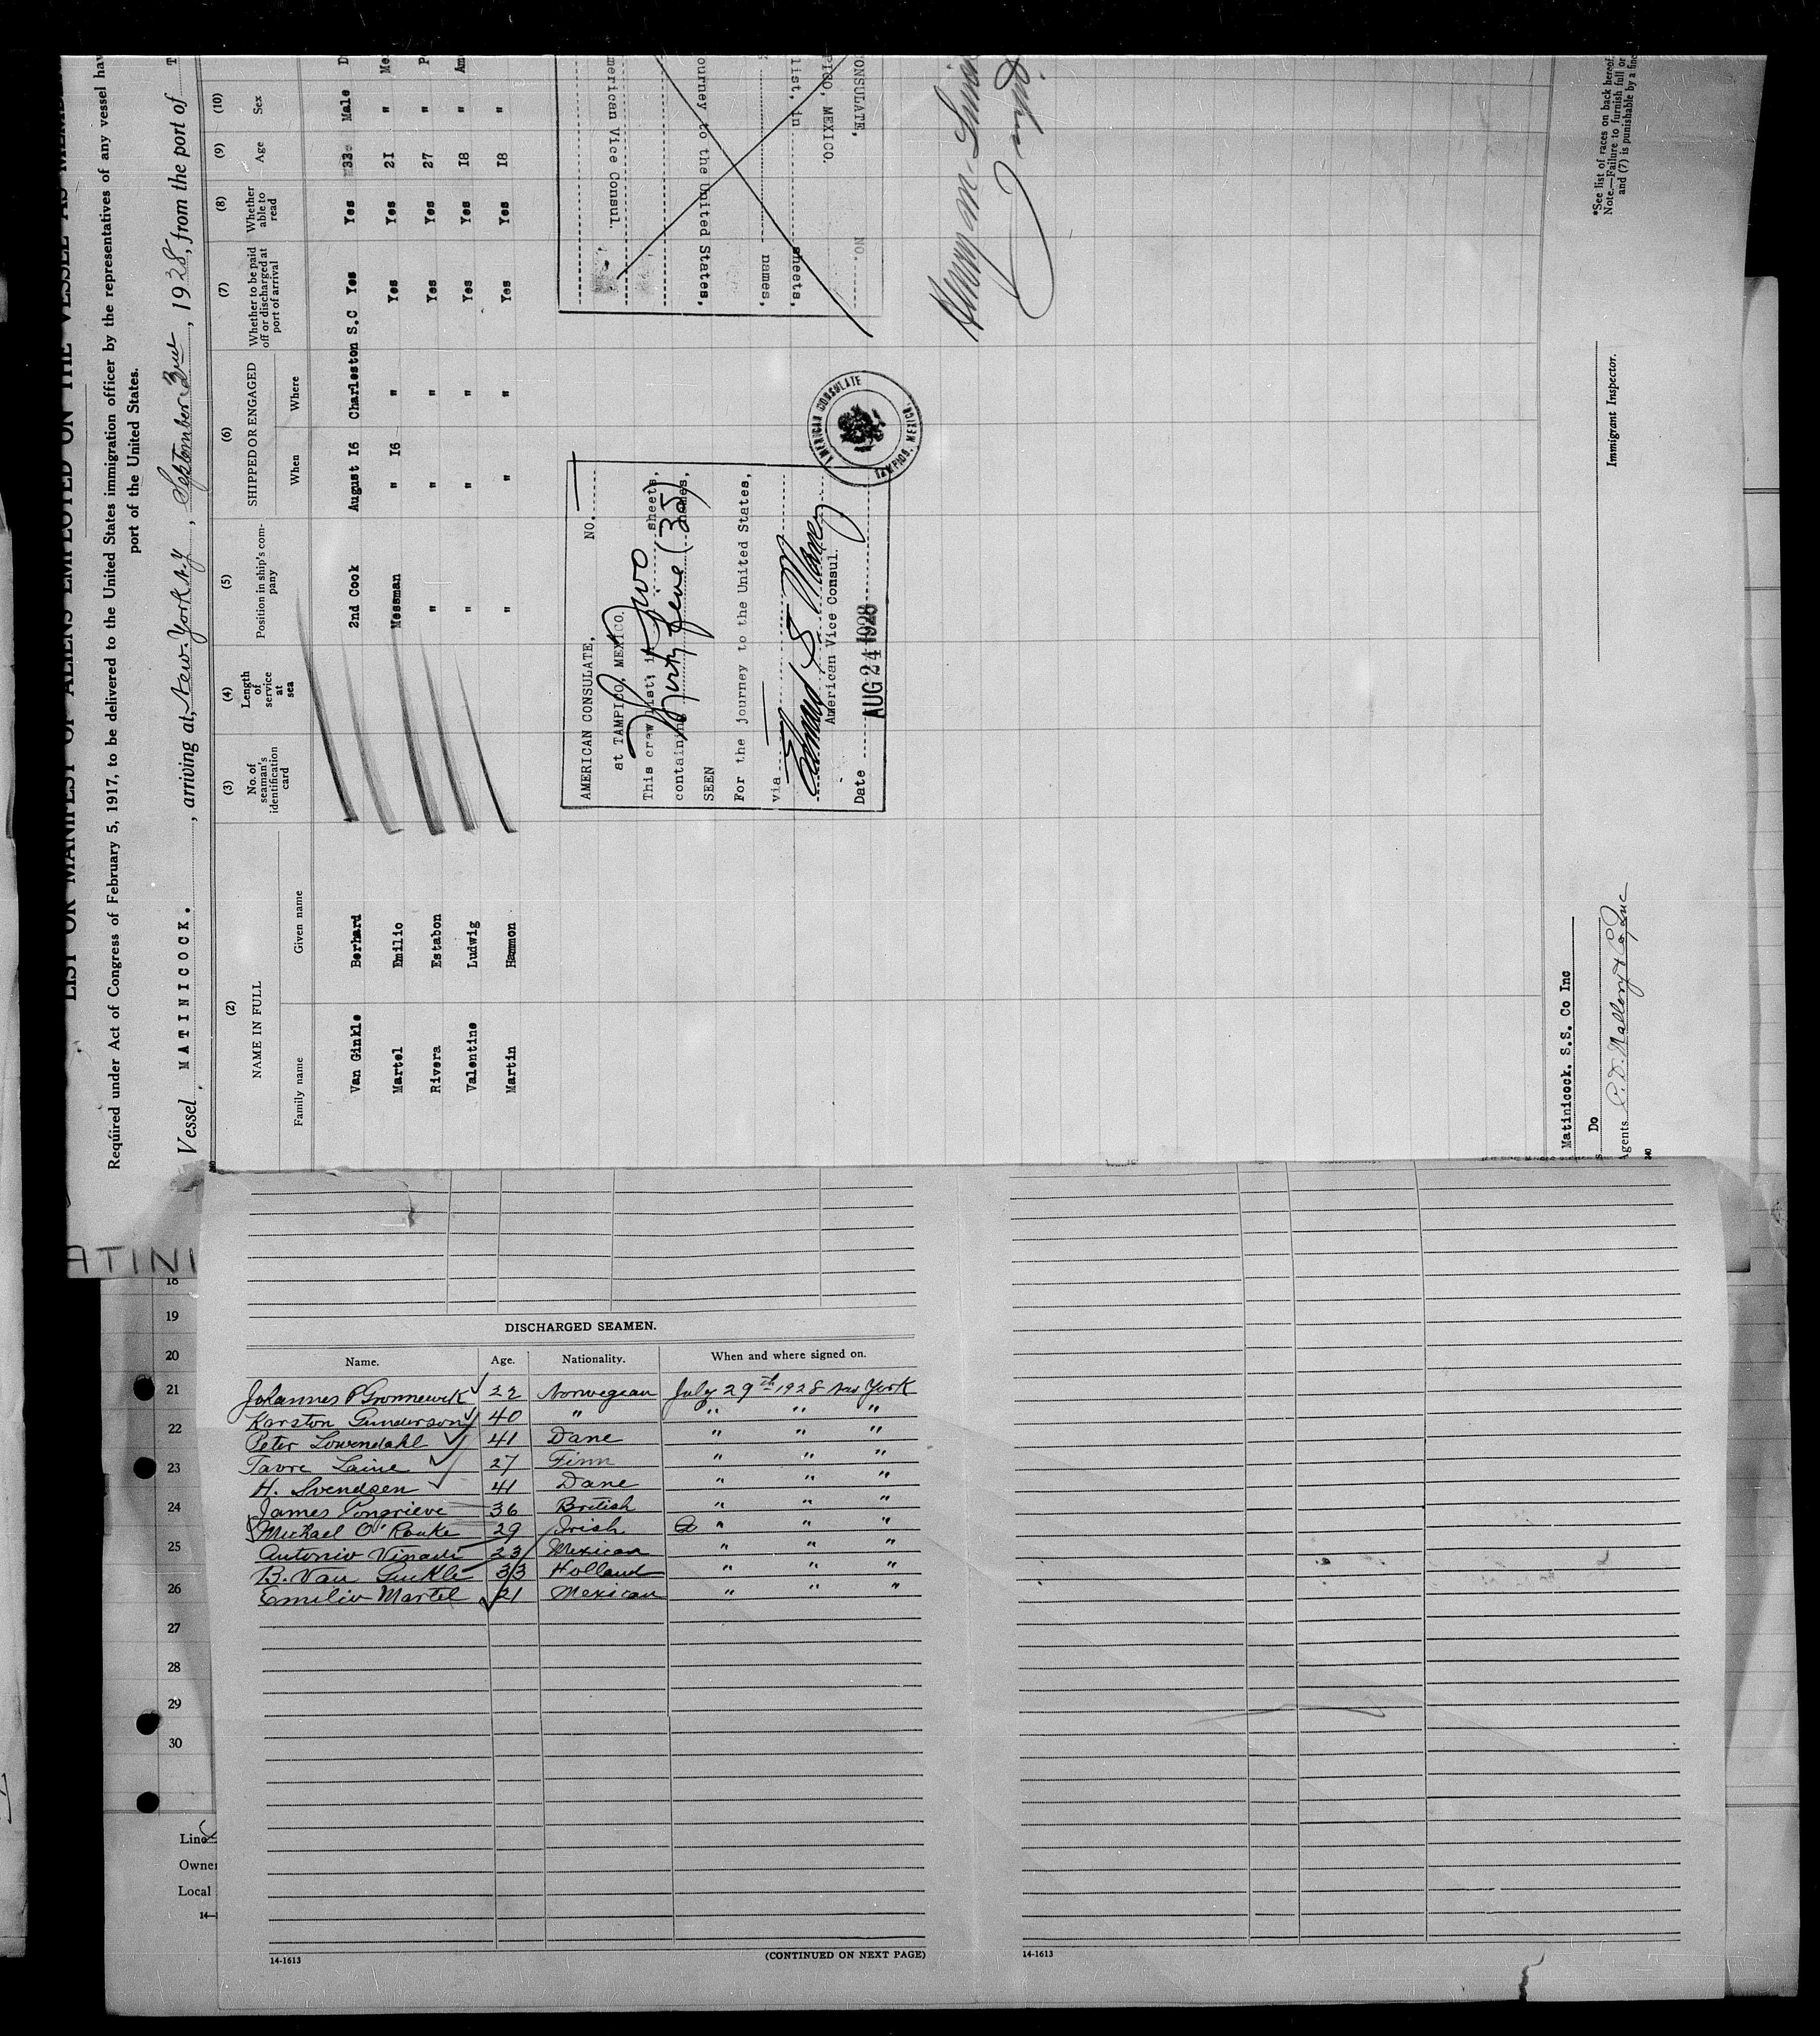 LIST OR MANIFEST OF ALIENS EMPLOYED ON THE VESSEL AS MEMB
Required under Act of Congress of February 5, 1917, to be delivered to the United States immigration officer by the representatives of any vessel hav
port of the United States.
Vessel MATINICOCK. , arriving at, New-York N.Y , September 2nd , 1928, from the port of T
(2) (3) (4) (5) (6) (7) (8) (9) (10)
NAME IN FULL No. of seaman's identification card Length of service at sea Position in ship's com-pany SHIPPED OR ENGAGED Whether to be paid off or discharged at port of arrival Whether able to read Age Sex
Family name Given name When Where
Van Ginkle Berhard 2nd Cook August 16 Charleston S.C Yes Yes 33 Male D
Martel Emilio Messman " 16 " Yes Yes 21 " Me
Rivera Estabon " " " Yes Yes 27 " P
Valentine Ludwig " " " Yes Yes 18 " Am
Martin Hammon " " " Yes Yes 18 "
AMERICAN CONSULATE, NO.
at TAMPICO, MEXICO.
This crew list, in Two sheets,
containing Thirty five (35) names,
SEEN
For the journey to the United States,
via
American Vice Consul.
Date AUG 24 1928
AMERICAN CONSULATE
TAMPICO, MEXICO.
ONSULATE, NO.
PICO, MEXICO.
list, in sheets,
names,
ourney to the United States,
merican Vice Consul.
Matinicock. S.S. Co Inc
Do
Agents C. D. Mallory & Co, Inc
240
Immigrant Inspector.
*See list of races on back hereof.
Note.—Failure to furnish full or
and (7) is punishable by a fine
ATINI
18
19
20
21
22
23
24
25
26
27
28
29
30
Line
Owner
Local
14—
DISCHARGED SEAMEN.
Name. Age. Nationality. When and where signed on.
Johannes P Gronnewik 22 Norwegean July 29th 1928 New York
Karston Gunderson 40 " " " "
Peter Lowendahl 41 Dane " " "
Tavre Laine 27 Finn " " "
H. Svendsen 41 Dane " " "
James Congrieve 36 British " " "
Michael O'Rouke 29 Irish " " "
Antonio Vinadi 23 Mexican " " "
B. Van Ginkle 33 Holland " " "
Emilio Martel 21 Mexican " " "
14-1613 (CONTINUED ON NEXT PAGE)
14-1613